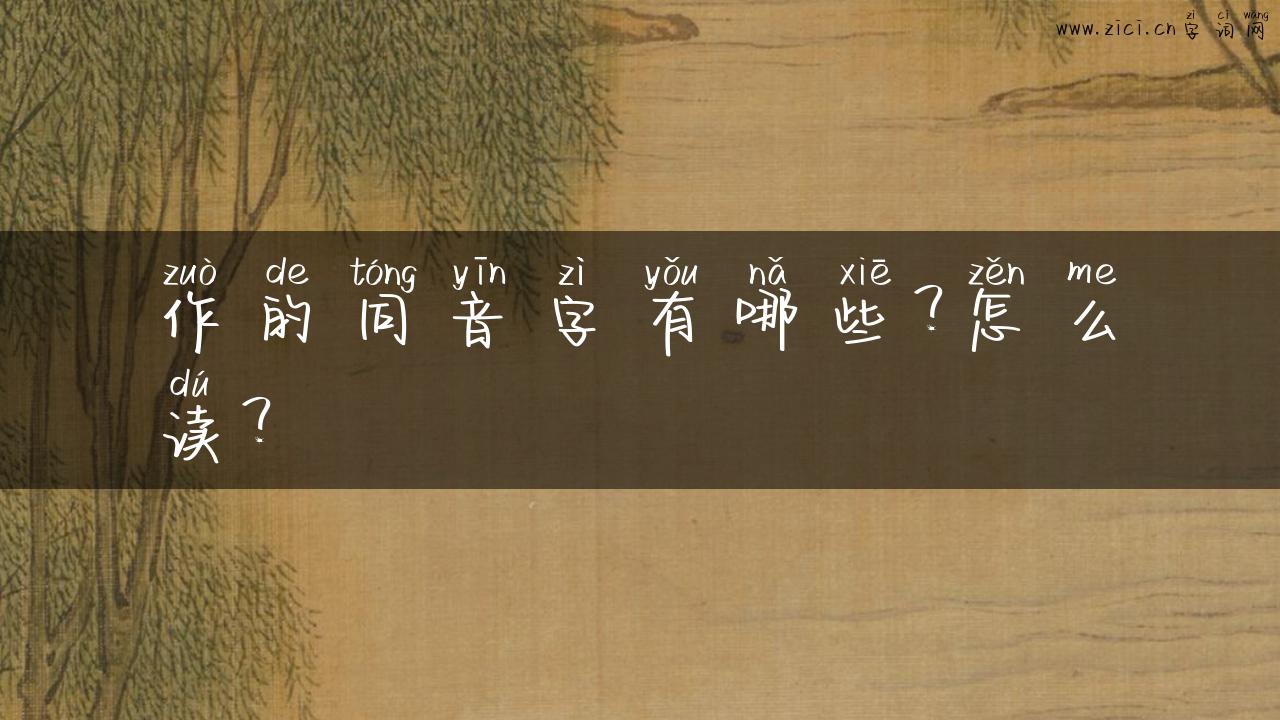 zì cí wǎng
www.zici.cn字词网
zuò de tóng yīn zì yǒu nǎ xiē zěn me
作的同音字有哪些？怎么
dú
读？